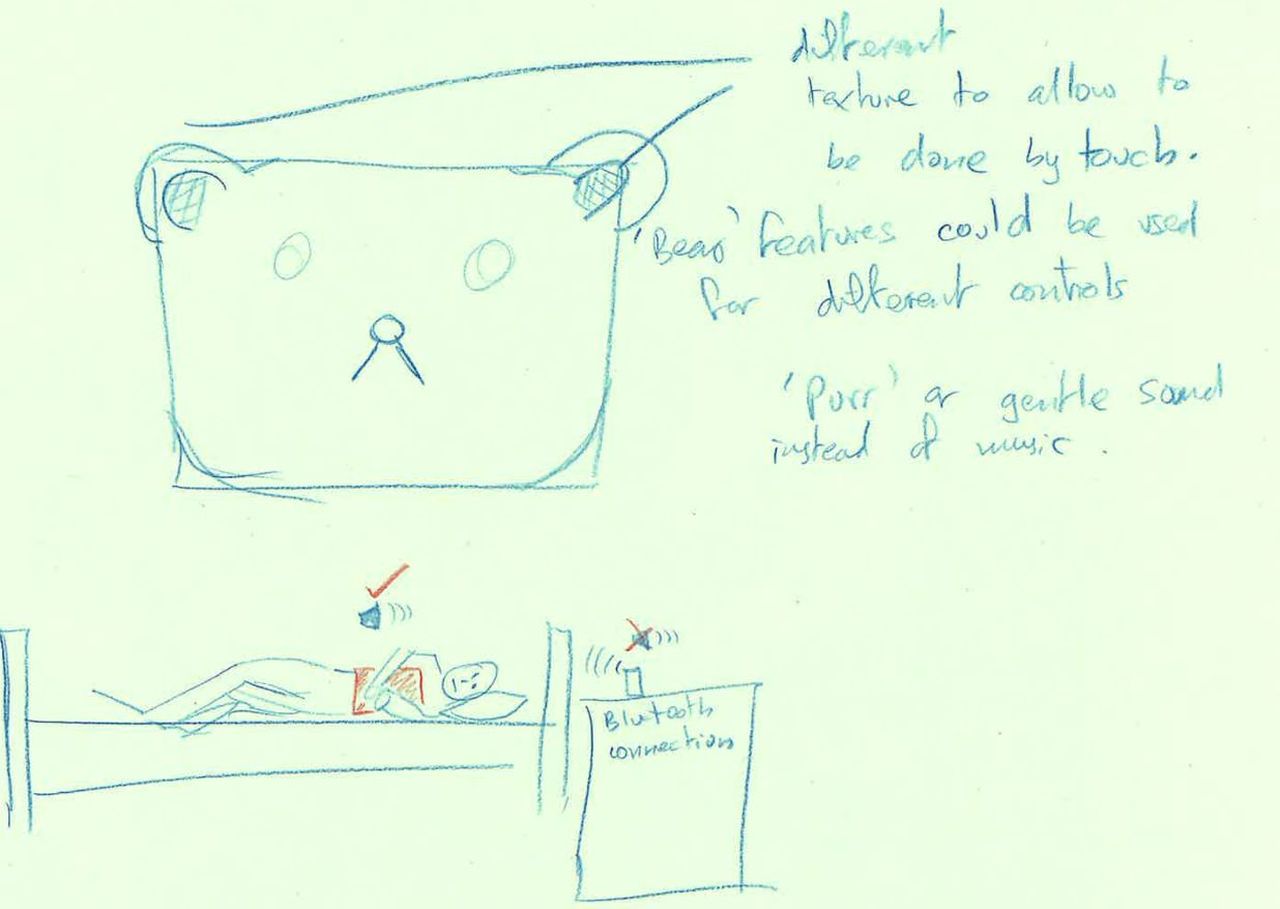 different
texture to allow to
be done by touch.
'Bear' features could be used
for different controls
'Purr' or gentle sound
instead of music.
Bluetooth
connection